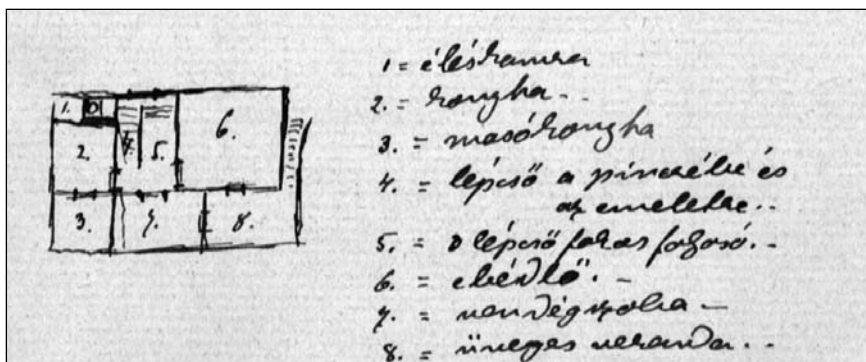 1. 4. 5. 6.
2.
3. 7. 8.
1 = éléskamra
2. = konyha. -
3. = mosókonyha
4. = lépcső a pinczébe és
az emeletre. .
5. = a lépcső folyosó. -
6. = ebédlő. -
7. = vendégszoba -
8. = üveges veranda. .